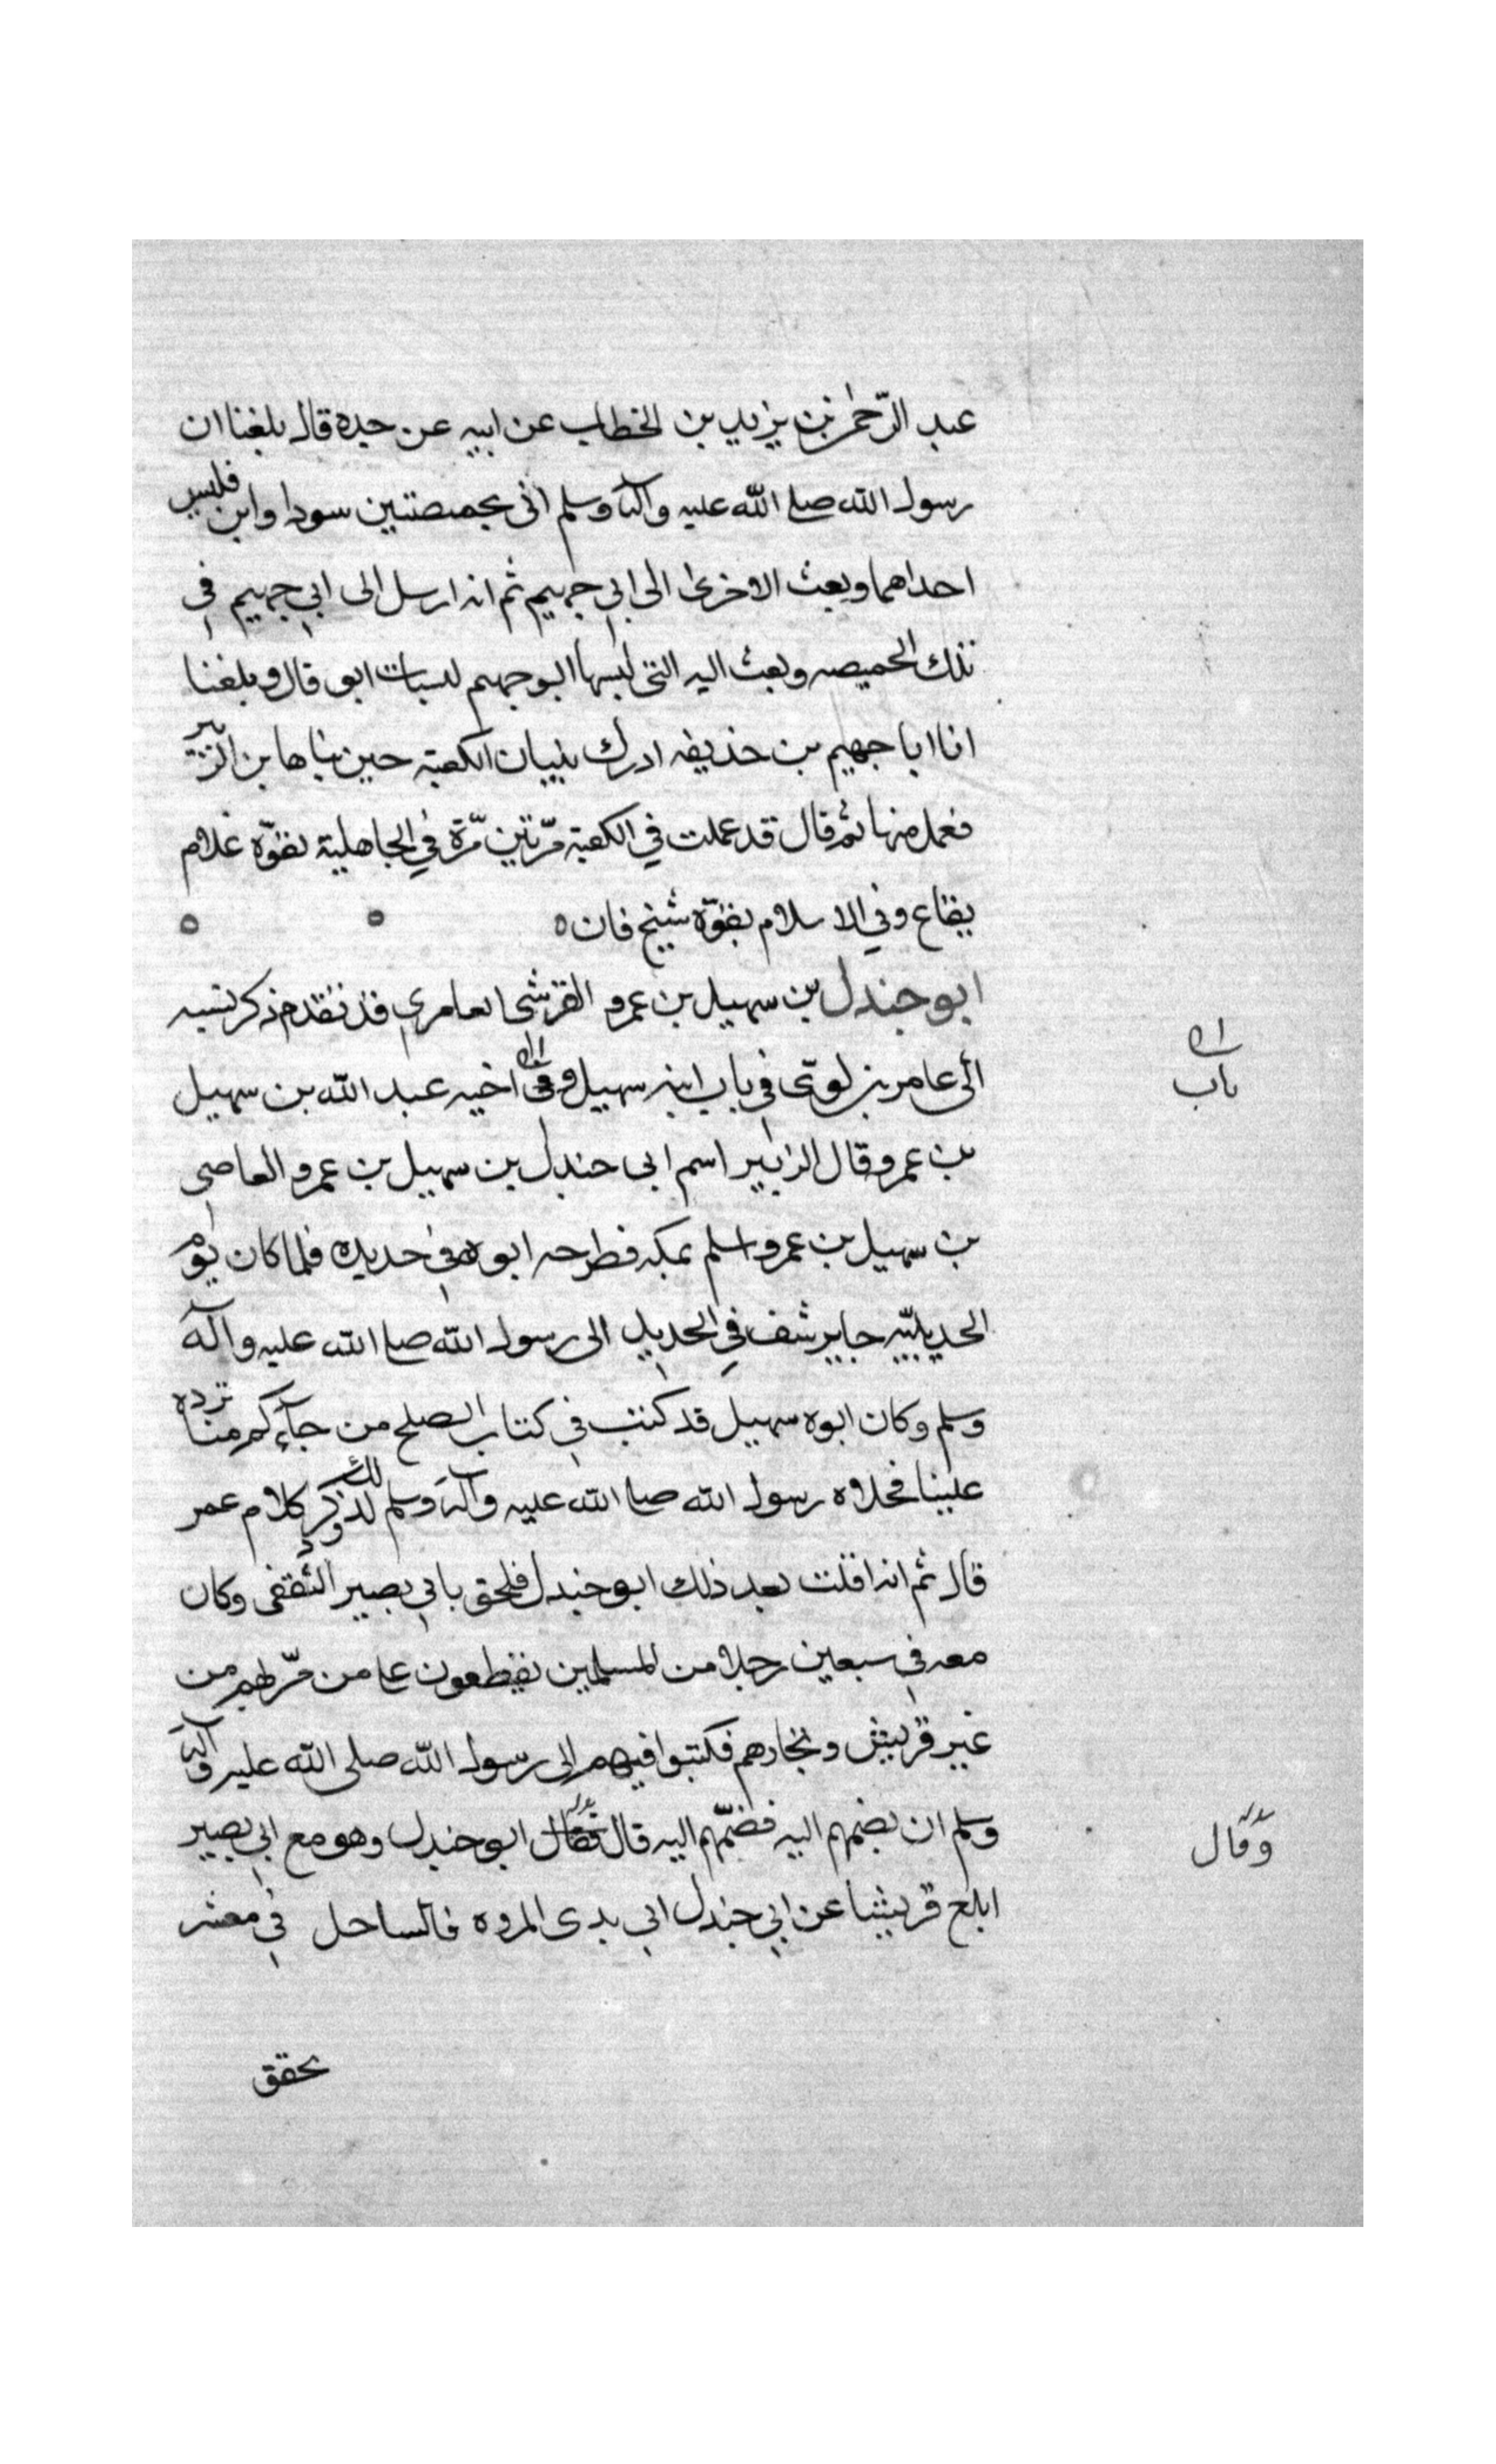 عبد الرّحمٰن بن يزيد بن الخطاب عن ابيه عن جده قال بلغنا ان
رسول الله صلى الله عليه وآله وسلم اتى بخميصتين سودا وابن فلبس
احداهما وبعث الاخرى الى ابي جهيم ثم انه ارسل الى ابي جهيم في
تلك الخميصه وبعث اليه التى لبسها ابو جهيم قال وبلغنا
انا ابا جهيم بن حذيفه ادرك بنيان الكعبة حين بناها بن الزبير
فعمل منها ثم قال قد عملت في الكعبة مرّتين مرّة في الجاهلية بقوّة غلام
يفاع وفي الاسلام بقوّة شيخ فان ه ه ه
ابو جندل بن سهيل بن عمرو القرشى العامرى قد تقدم ذكر نسبه
الى عامر بن لوىّ في باب ابيه سهيل وفى اخيه عبد الله بن سهيل
باب
بن عمرو قال الزبير اسم ابى جندل بن سهيل بن عمرو العاصى
بن سهيل بن عمرو اسلم بمكه فطرحه ابوه في حديد فلما كان يوم
الحديبيّه جا يرسف في الحديد الى رسول الله صلى الله عليه وآله
وسلم وكان ابوه سهيل قد كتب في كتاب الصلح من جآءكم منا ترده
علينا فخلاه رسول الله صلى الله عليه وآله وسلم لذلك وذكر كلام عمر
قال ثم انه افلت بعد ذلك ابو جندل فلحق بابي بصير الثقفى وكان
معه في سبعين رجلا من المسلمين يقطعون على من مرّ بهم من
غير قريش وتجارهم فكتبوا فيهم الى رسول الله صلى الله عليه وآله
وسلم ان يضمهم اليه فضمّهم اليه قال فقال ابو جندل وهو مع ابي بصير
وقال
ابلغ قريشا عن ابي جندل انى بذى المروه فالساحل في معشر
بحقق